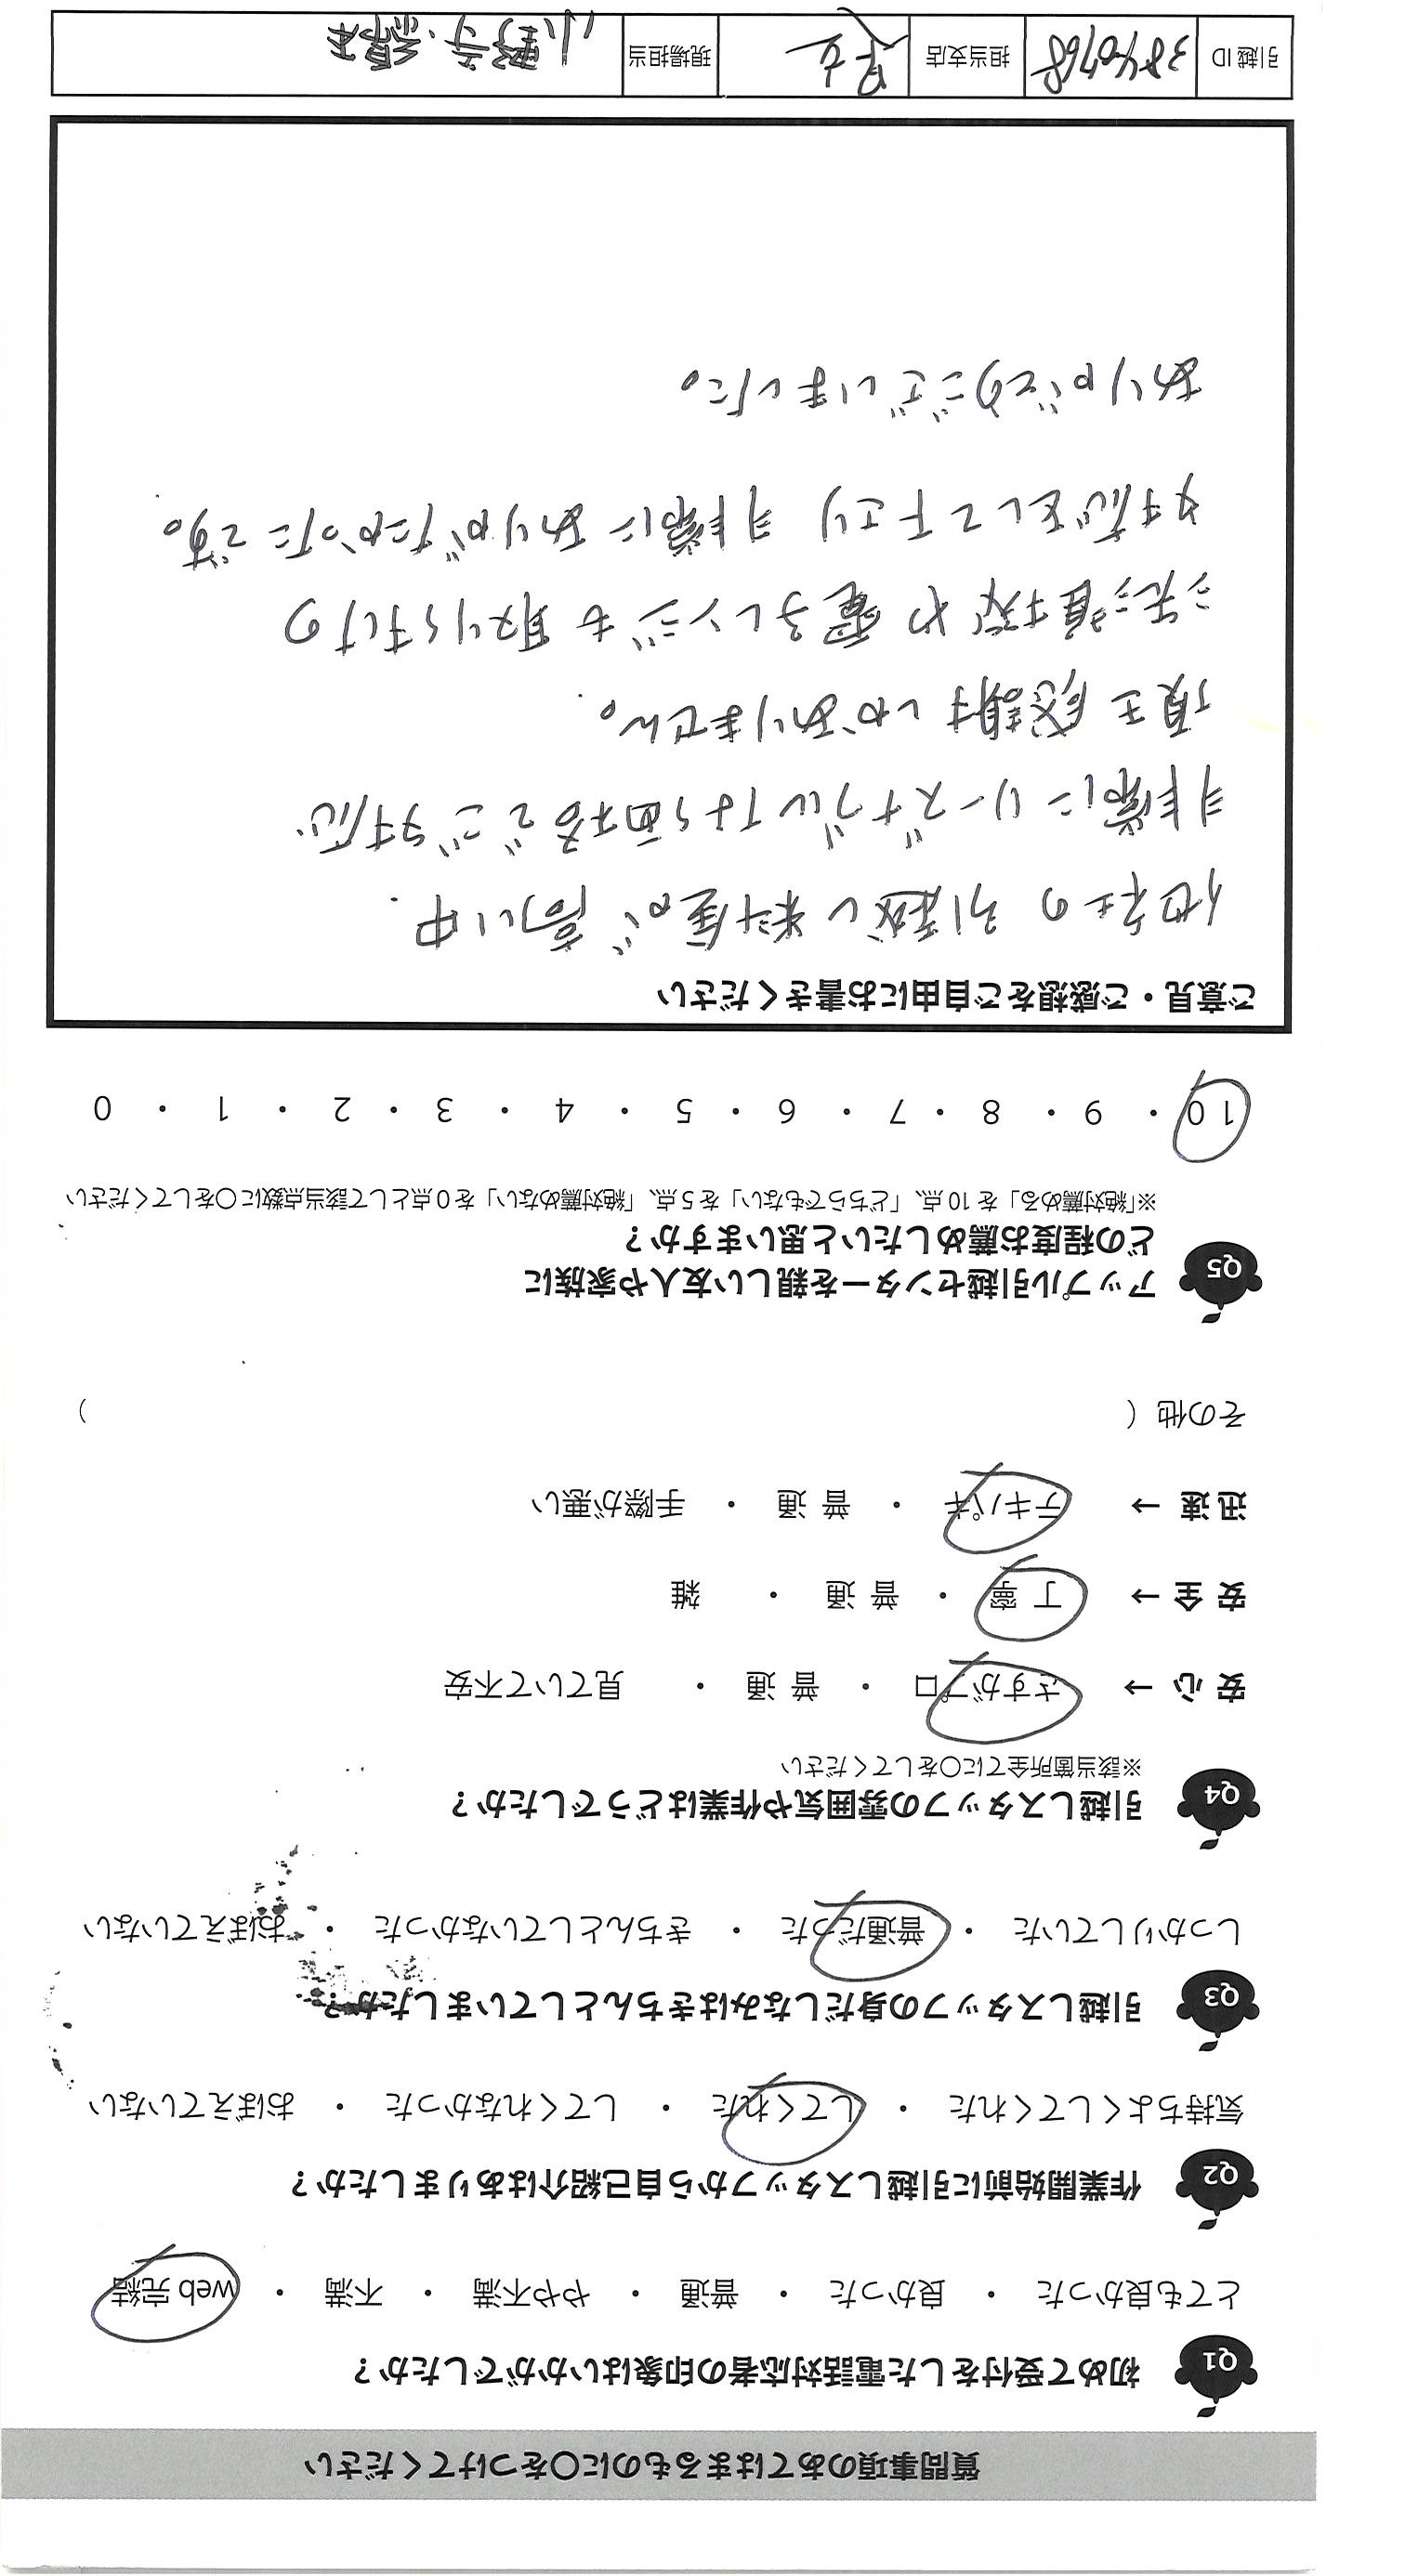 質問事項のあてはまるものに○をつけてください
Q1 初めて受付をした電話対応者の印象はいかがでしたか？
とても良かった ・ 良かった ・ 普通 ・ やや不満 ・ 不満 ・ web 完結
Q2 作業開始前に引越しスタッフから自己紹介はありましたか？
気持ちよくしてくれた ・ してくれた ・ してくれなかった ・ おぼえていない
Q3 引越しスタッフの身だしなみはきちんとしていましたか？
しっかりしていた ・ 普通だった ・ きちんとしていなかった ・ おぼえていない
Q4 引越しスタッフの雰囲気や作業はどうでしたか？
※該当箇所全てに○をしてください
安 心 → さすがプロ ・ 普 通 ・ 見ていて不安
安 全 → 丁 寧 ・ 普 通 ・ 雑
迅 速 → テキパキ ・ 普 通 ・ 手際が悪い
その他（ ）
Q5 アップル引越センターを親しい友人や家族に
どの程度お薦めしたいと思いますか？
※「絶対薦める」を 10 点、「どちらでもない」を 5 点、「絶対薦めない」を 0 点として該当点数に○をしてください
10 ・ 9 ・ 8 ・ 7 ・ 6 ・ 5 ・ 4 ・ 3 ・ 2 ・ 1 ・ 0
ご意見・ご感想をご自由にお書きください
他社の引越し料金が高い中
非常にリーズナブルな価格でご対応
頂き感謝しかありません。
洗濯機や電子レンジも取り付けの
対応をして下さり 非常にありがたかったです。
ありがとうございました。
引越 ID 3840768 担当支店 現場担当 小野寺・